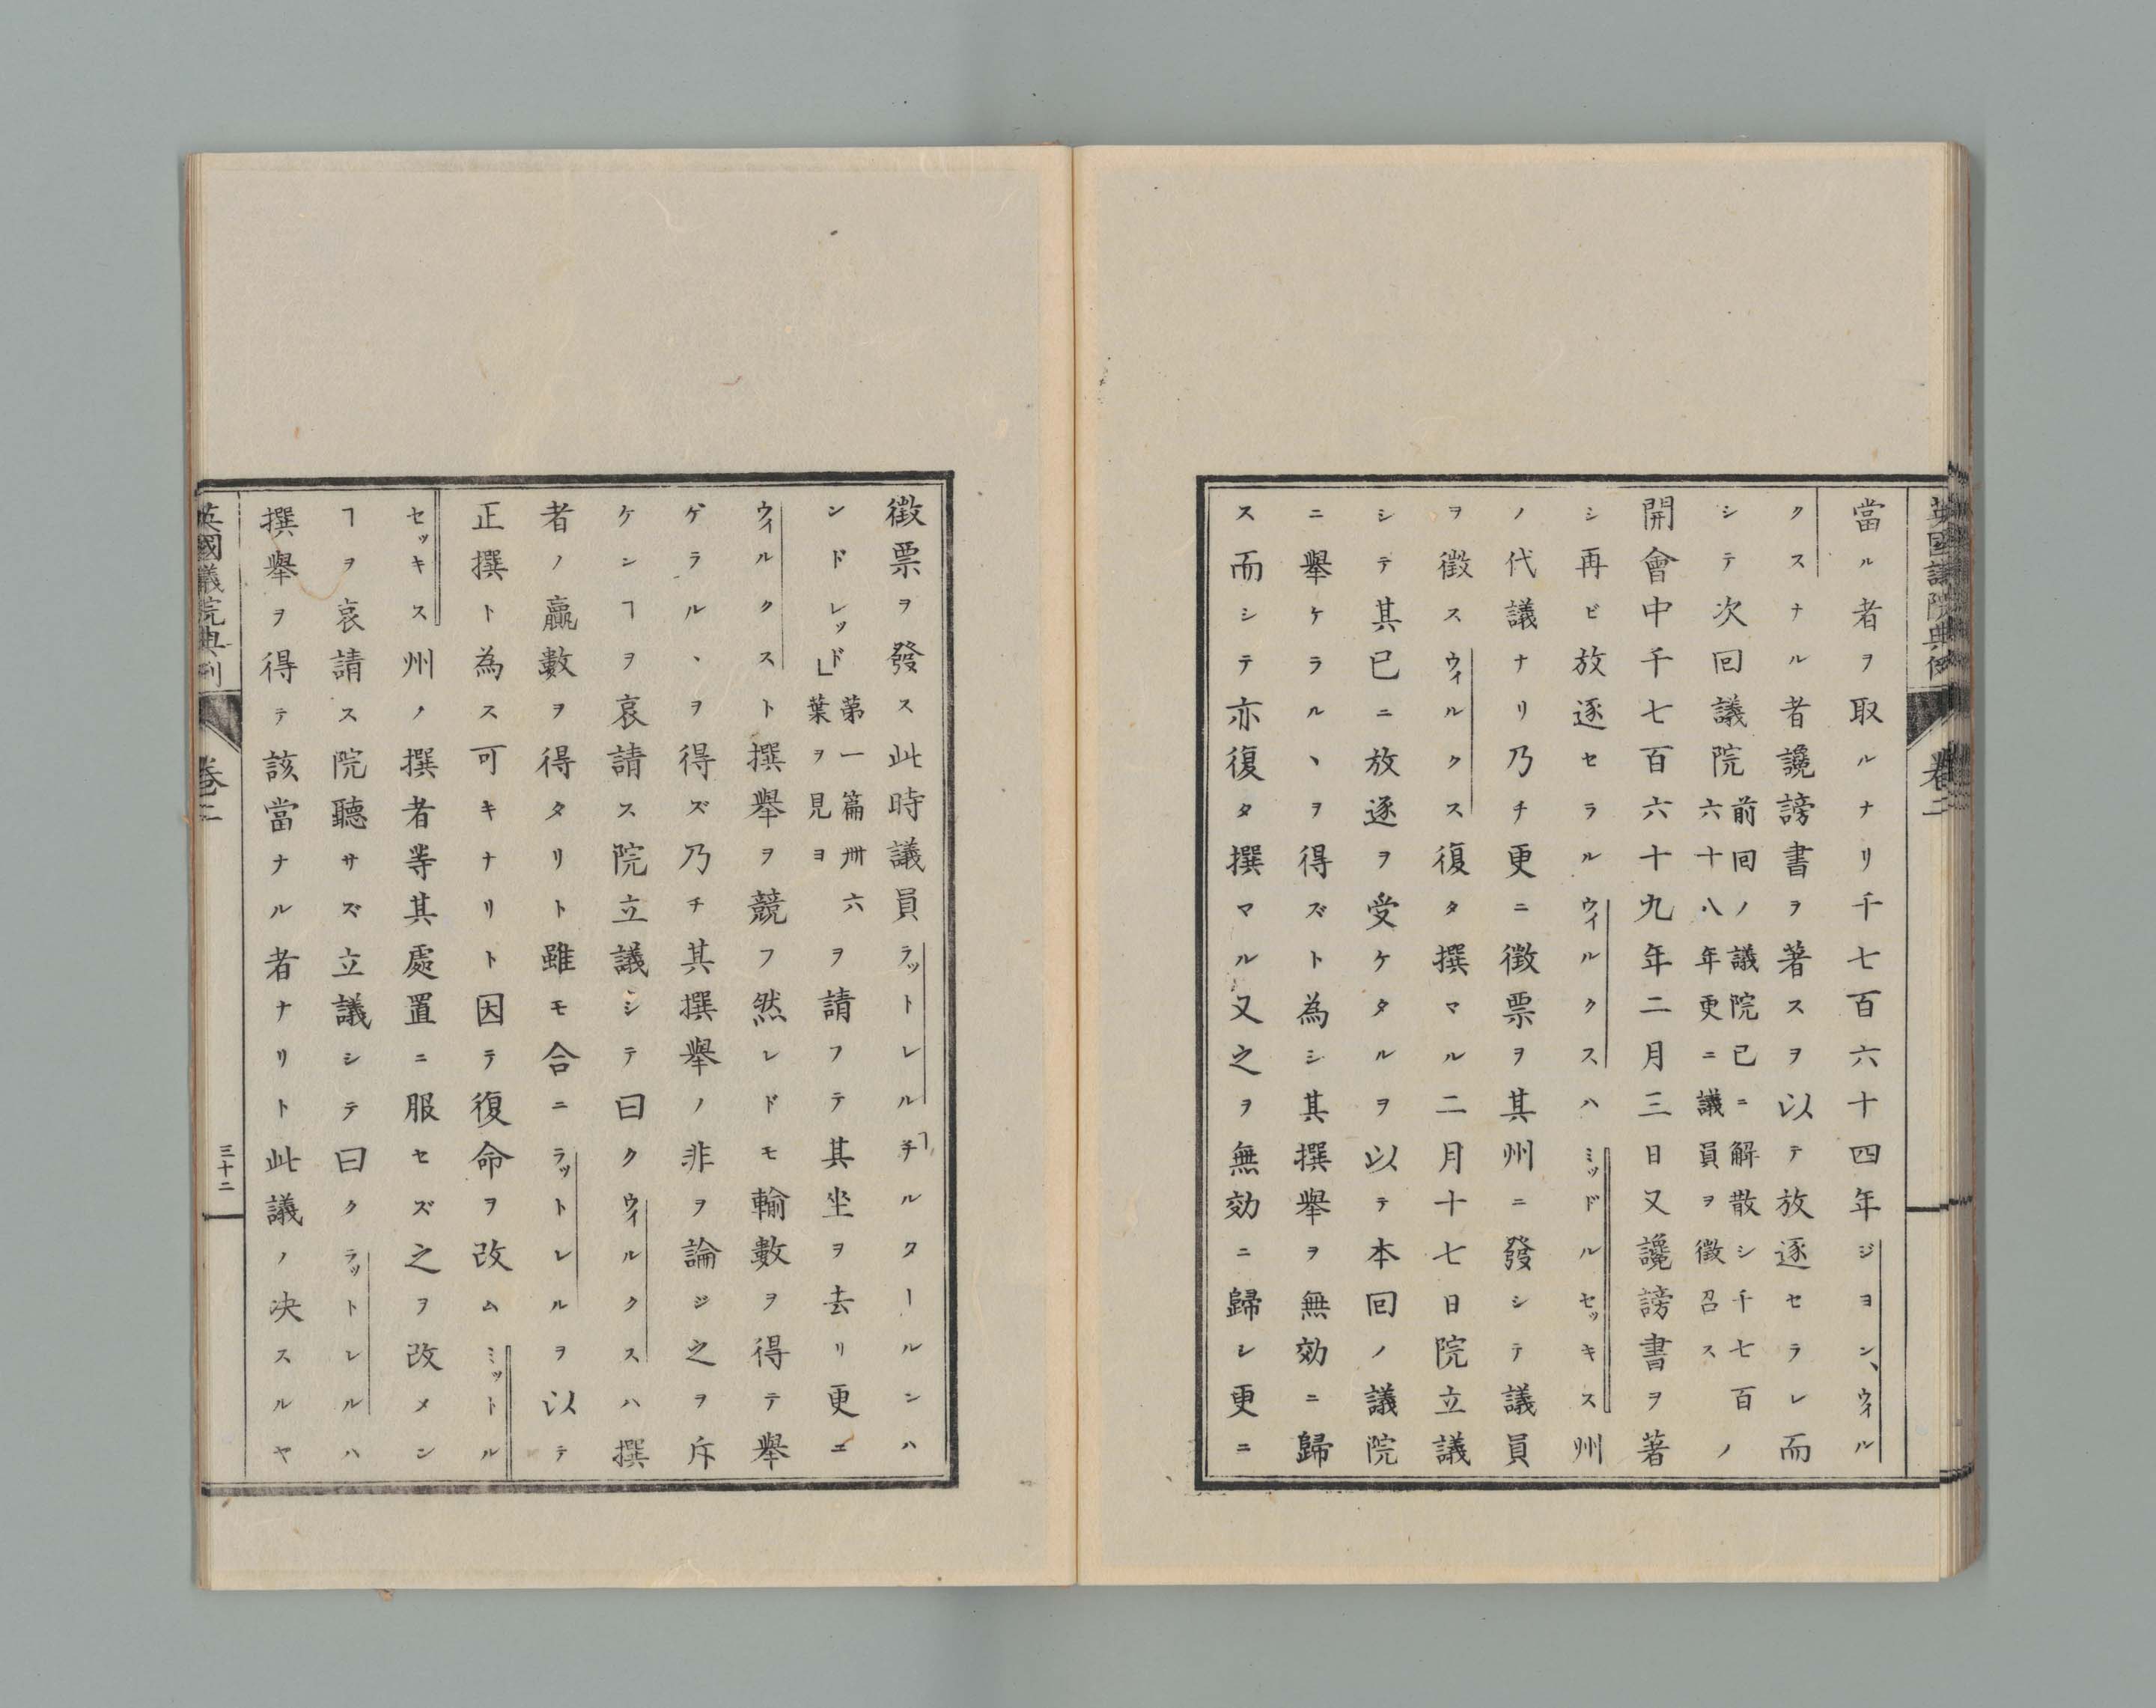 英國議院典例
卷二
當ル者ヲ取ルナリ千七百六十四年ジヨン、ウィル
クスナル者讒謗書ヲ著スヲ以テ放逐セラレ而
シテ次回議院前回ノ議院已ニ解散シ千七百六十八年更ニ議員ヲ徵召スノ
開會中千七百六十九年二月三日又讒謗書ヲ著
シ再ビ放逐セラルウィルクスハミッドルセッキス州
ノ代議ナリ乃チ更ニ徵票ヲ其州ニ發シテ議員
ヲ徵スウィルクス復タ撰マル二月十七日院立議
シテ其已ニ放逐ヲ受ケタルヲ以テ本回ノ議院
ニ擧ケラルヽヲ得ズト為シ其撰擧ヲ無効ニ歸
ス而シテ亦復タ撰マル又之ヲ無効ニ歸レ更ニ
徵票ヲ發ス此時議員ラットレル「チルタールンハ
ンドレッド」第一篇卅六葉ヲ見ヨヲ請フテ其坐ヲ去リ更ニ
ウィルクスト撰擧ヲ競フ然レドモ輸數ヲ得テ擧
ゲラルヽヲ得ズ乃チ其撰擧ノ非ヲ論ジ之ヲ斥
ケンヿヲ哀請ス院立議シテ曰クウィルクスハ撰
者ノ贏數ヲ得タリト雖モ合ニラットレルヲ以テ
正撰ト為ス可キナリト因テ復命ヲ改ムミットル
セッキス州ノ撰者等其處置ニ服セズ之ヲ改メン
ヿヲ哀請ス院聽サズ立議シテ曰クラットレルハ
撰擧ヲ得テ該當ナル者ナリト此議ノ决スルヤ
英國議院典例
卷二
三十二